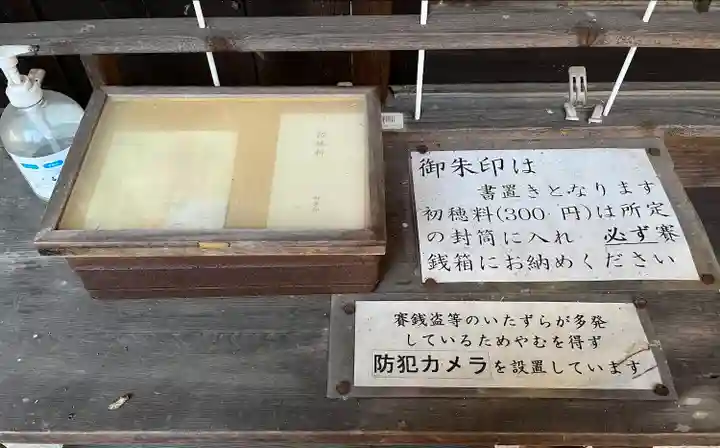 初穂料
御朱印は
書置きとなります
初穂料(300 円)は所定
の封筒に入れ 必ず賽
銭箱にお納めください
賽銭盗等のいたずらが多発
しているためやむを得ず
防犯カメラを設置しています